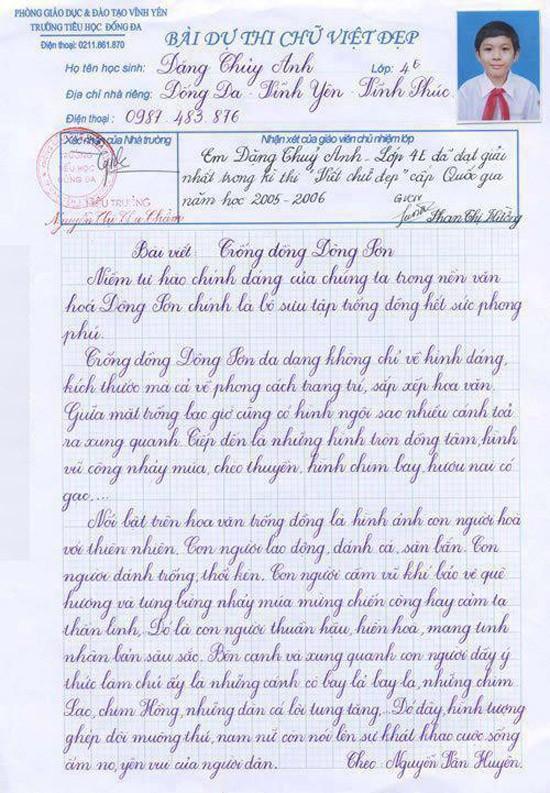 PHÒNG GIÁO DỤC & ĐÀO TẠO VĨNH YÊN
TRƯỜNG TIỂU HỌC ĐỐNG ĐA
Điện thoại: 0211.861.870
BÀI DỰ THI CHỮ VIỆT ĐẸP
Họ tên học sinh: Dáng Thủy Anh Lớp: 4E
Địa chỉ nhà riêng: Đống Đa - Vĩnh Yên - Vĩnh Phúc.
Điện thoại: 0987 483 876
Xác nhận của Nhà trường
Nhận xét của giáo viên chủ nhiệm lớp
Em Đặng Thuỳ Anh - Lớp 4E đã đạt giải
nhất trong kì thi "Viết chữ đẹp" cấp Quốc gia
năm học 2005-2006
GVCN
HIỆU TRƯỞNG
Phan Thị Hường
Bài viết: Trống đồng Đông Sơn
Niềm tự hào chính đáng của chúng ta trong nền văn
hoá Đông Sơn chính là bộ sưu tập trống đồng hết sức phong
phú.
Trống đồng Đông Sơn đa dạng không chỉ về hình dáng,
kích thước mà cả về phong cách trang trí, sắp xếp hoa văn.
Giữa mặt trống bao giờ cũng có hình ngôi sao nhiều cánh toả
ra xung quanh. Tiếp đến là những hình tròn đồng tâm, hình
vũ công nhảy múa, chèo thuyền, hình chim bay, hươu nai có
gạc,...
Nổi bật trên hoa văn trống đồng là hình ảnh con người hoà
với thiên nhiên. Con người lao động, đánh cá, săn bắn. Con
người đánh trống, thổi kèn. Con người cầm vũ khí bảo vệ quê
hương và tưng bừng nhảy múa mừng chiến công hay cảm tạ
thần linh, Đó là con người thuần hậu, hiền hoà, mang tính
nhân bản sâu sắc. Bên cạnh và xung quanh con người đầy ý
thức làm chủ ấy là những cánh cò bay lả bay la, những chim
Lạc, chim Hồng, những đàn cá lội tung tăng, Đó đây, hình tượng
ghép đôi muông thú, nam nữ còn nói lên sự khát khao cuộc sống
ấm no, yên vui của người dân. Theo: Nguyễn Văn Huyên.